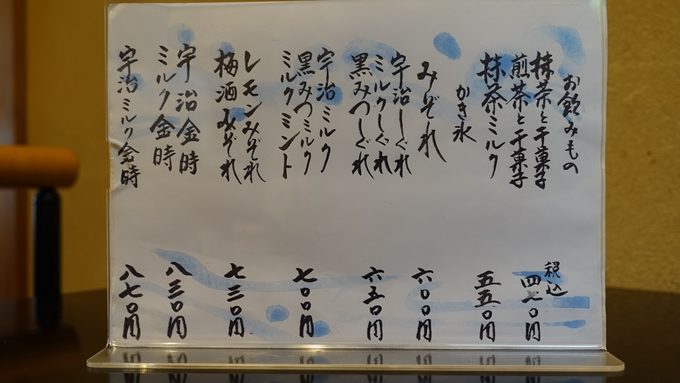 お飲みもの
抹茶と干菓子
煎茶と干菓子
税込
四七〇円
抹茶ミルク
五五〇円
かき氷
みぞれ
六〇〇円
宇治しぐれ
ミルクしぐれ
黒みつしぐれ
六五〇円
宇治ミルク
黒みつミルク
ミルクミント
七〇〇円
レモンみぞれ
梅酒みぞれ
七三〇円
宇治金時
ミルク金時
八三〇円
宇治ミルク金時
八七〇円